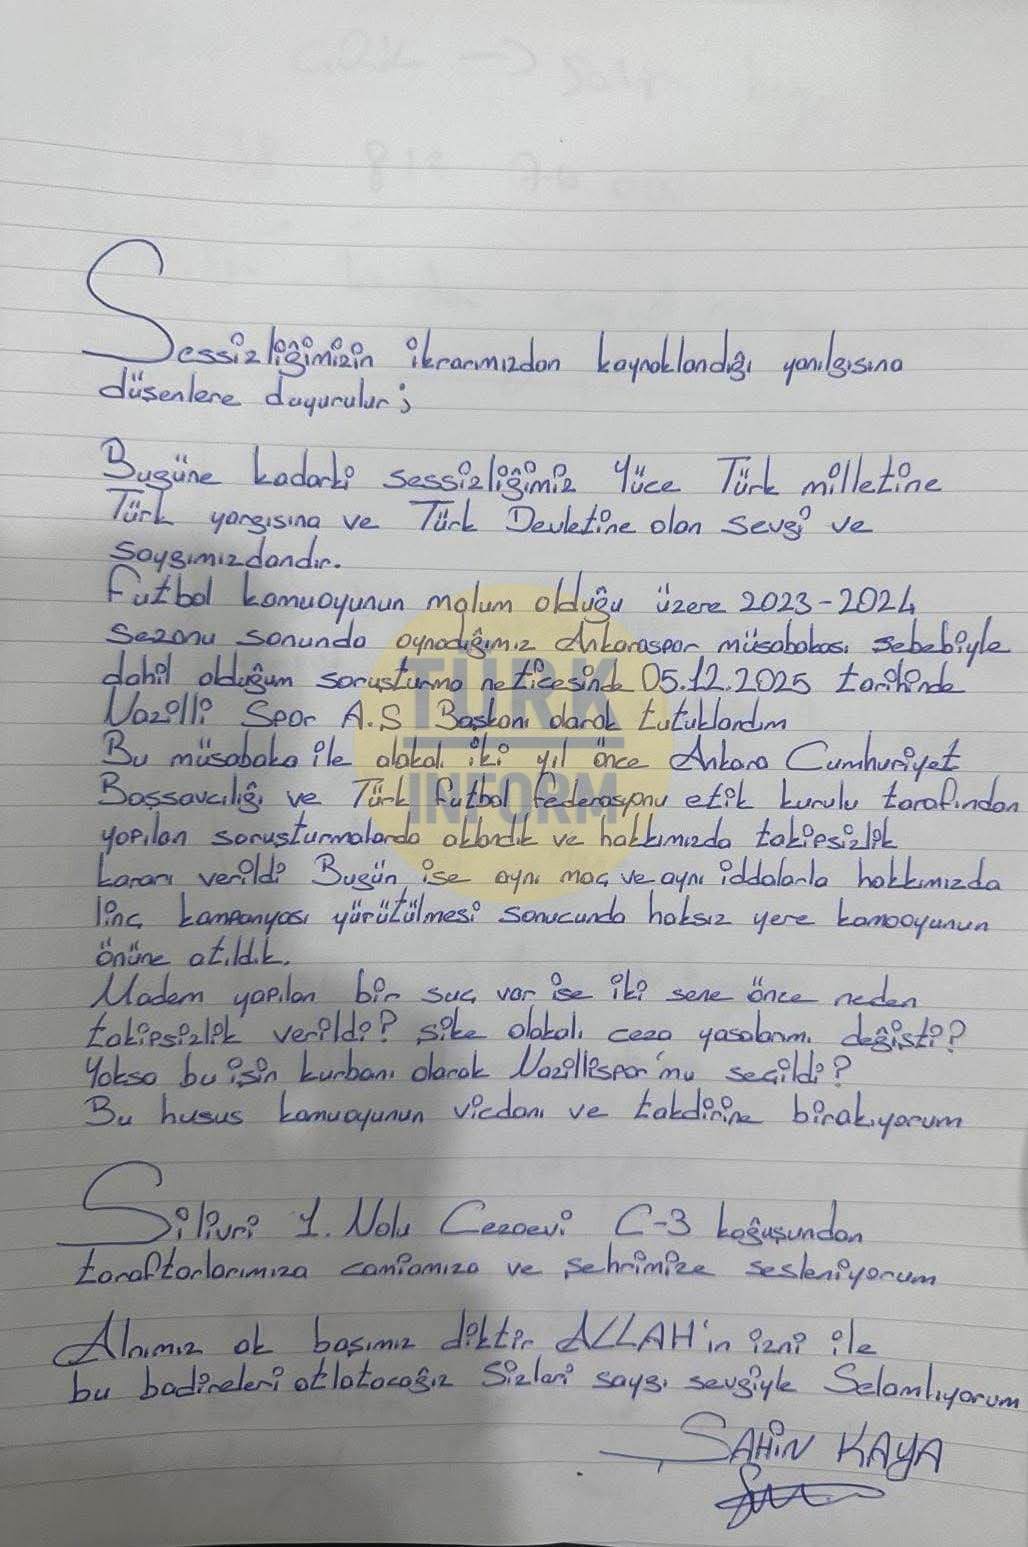 Sessizliğimizin ikrarımızdan kaynaklandığı yanılgısına
düşenlere duyurulur;
Bugüne kadarki sessizliğimiz Yüce Türk milletine
Türk yargısına ve Türk Devletine olan sevgi ve
saygımızdandır.
Futbol kamuoyunun malum olduğu üzere 2023-2024
Sezonu sonunda oynadığımız Ankaraspor müsabakası sebebiyle
dahil olduğum soruşturma neticesinde 05.12.2025 tarihinde
Nazilli Spor A.S Başkanı olarak tutuklandım
Bu müsabaka ile alakalı iki yıl önce Ankara Cumhuriyet
Başsavcılığı ve Türk Futbol Federasyonu etik kurulu tarafından
yapılan soruşturmalarda aklandık ve hakkımızda takipsizlik
kararı verildi Bugün ise aynı maç ve aynı iddalarla hakkımızda
linç kampanyası yürütülmesi sonucunda haksız yere kamooyunun
önüne atıldık.
Madem yapılan bir suç var ise iki sene önce neden
takipsizlik verildi? şike alakalı ceza yasalarımı değişti?
Yoksa bu işin kurbanı olarak Nazillispor'mu seçildi?
Bu husus kamuoyunun vicdanı ve takdirine birakıyorum
Silivri 1. Nolu Cezaevi C-3 koğuşundan
taraftarlarımıza camiamıza ve şehrimize sesleniyorum
Alnımız ak başımız diktir ALLAH'in izni ile
bu badireleri atlatacağız Sizleri saygı sevgiyle Selamlıyorum
ŞAHİN KAYA
TÜRK
INFORM